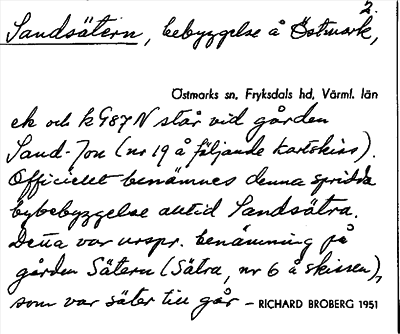 2.
Sandsätern, bebyggelse å Östmark,
Östmarks sn, Fryksdals hd, Värml. län
ek och k G87 N står vid gården
Sand-Jon (nr 19 å följande kartskiss).
Officiellt benämnes denna spridda
bybebyggelse alltid Sandsätra.
Detta var urspr. benämning på
gården Sätern (Sätra, nr 6 å skissen),
som var säter till går – RICHARD BROBERG 1951